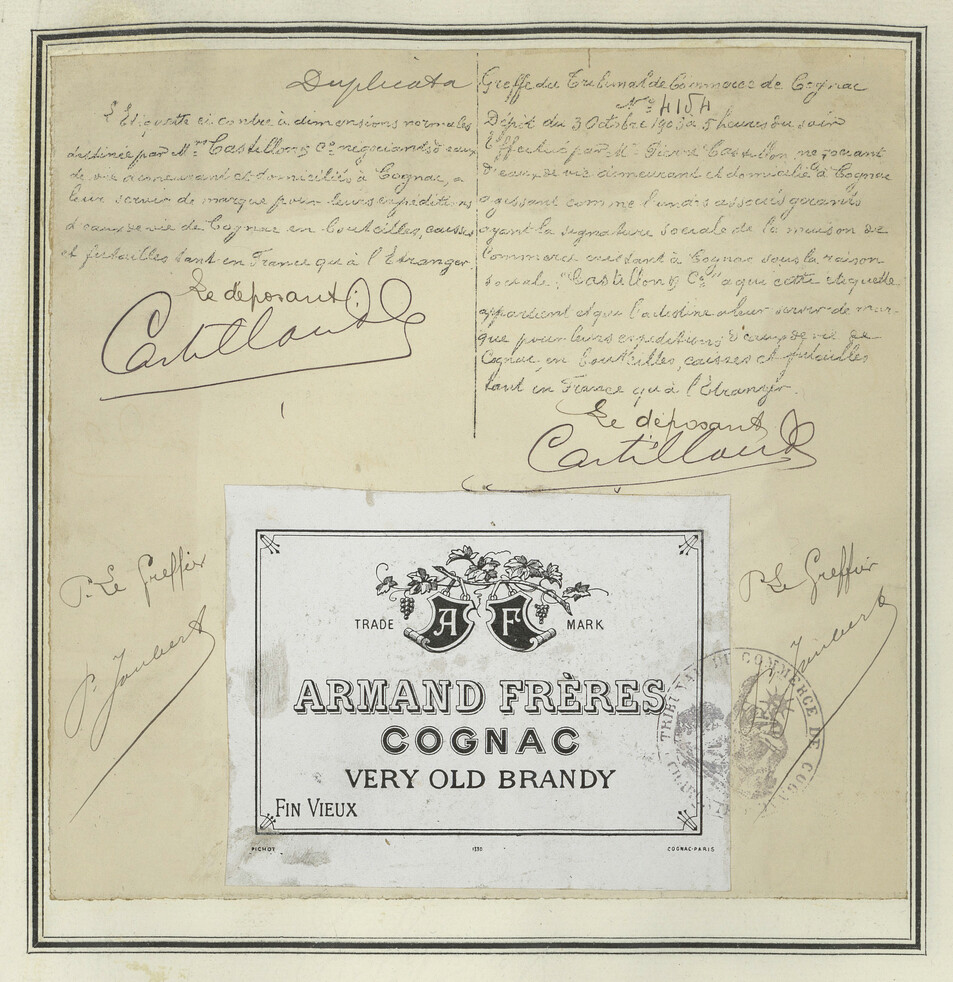 Duplicata
L'Etiquette ci contre à dimensions normales
destinée par M.rs Castillon & Co négociants d'eaux
de vie demeurant et domiciliés à Cognac, a
leur servir de marque pour leurs expéditions
d'eaux de vie de Cognac en bouteilles, caisses
et futailles tant en France qu'à l'Etranger.
Le déposant:
Greffe du Tribunal de Commerce de Cognac
No 4154
Dépôt du 3 Octobre à 5 heures du soir
Effectué par Mr Pierre Castillon négociant
d'eaux de vie demeurant et domicilié à Cognac
agissant comme l'un des associés gérants
ayant la signature sociale de la maison de
Commerce existant à Cognac sous la raison
sociale: "Castillon & Co" a qui cette étiquette
appartient et qui l'a destine a leur servir de mar-
que pour leurs expéditions d'eaux de vie de
Cognac en bouteilles, caisses et futailles
tant en France qu'à l'Etranger.
Le déposant
P. Le Greffier
P. Joubert
P. Le Greffier
Joubert
TRADE A F MARK
ARMAND FRÈRES
COGNAC
VERY OLD BRANDY
FIN VIEUX
PICHOT COGNAC-PARIS
TRIBUNAL DU COMMERCE DE COGNAC